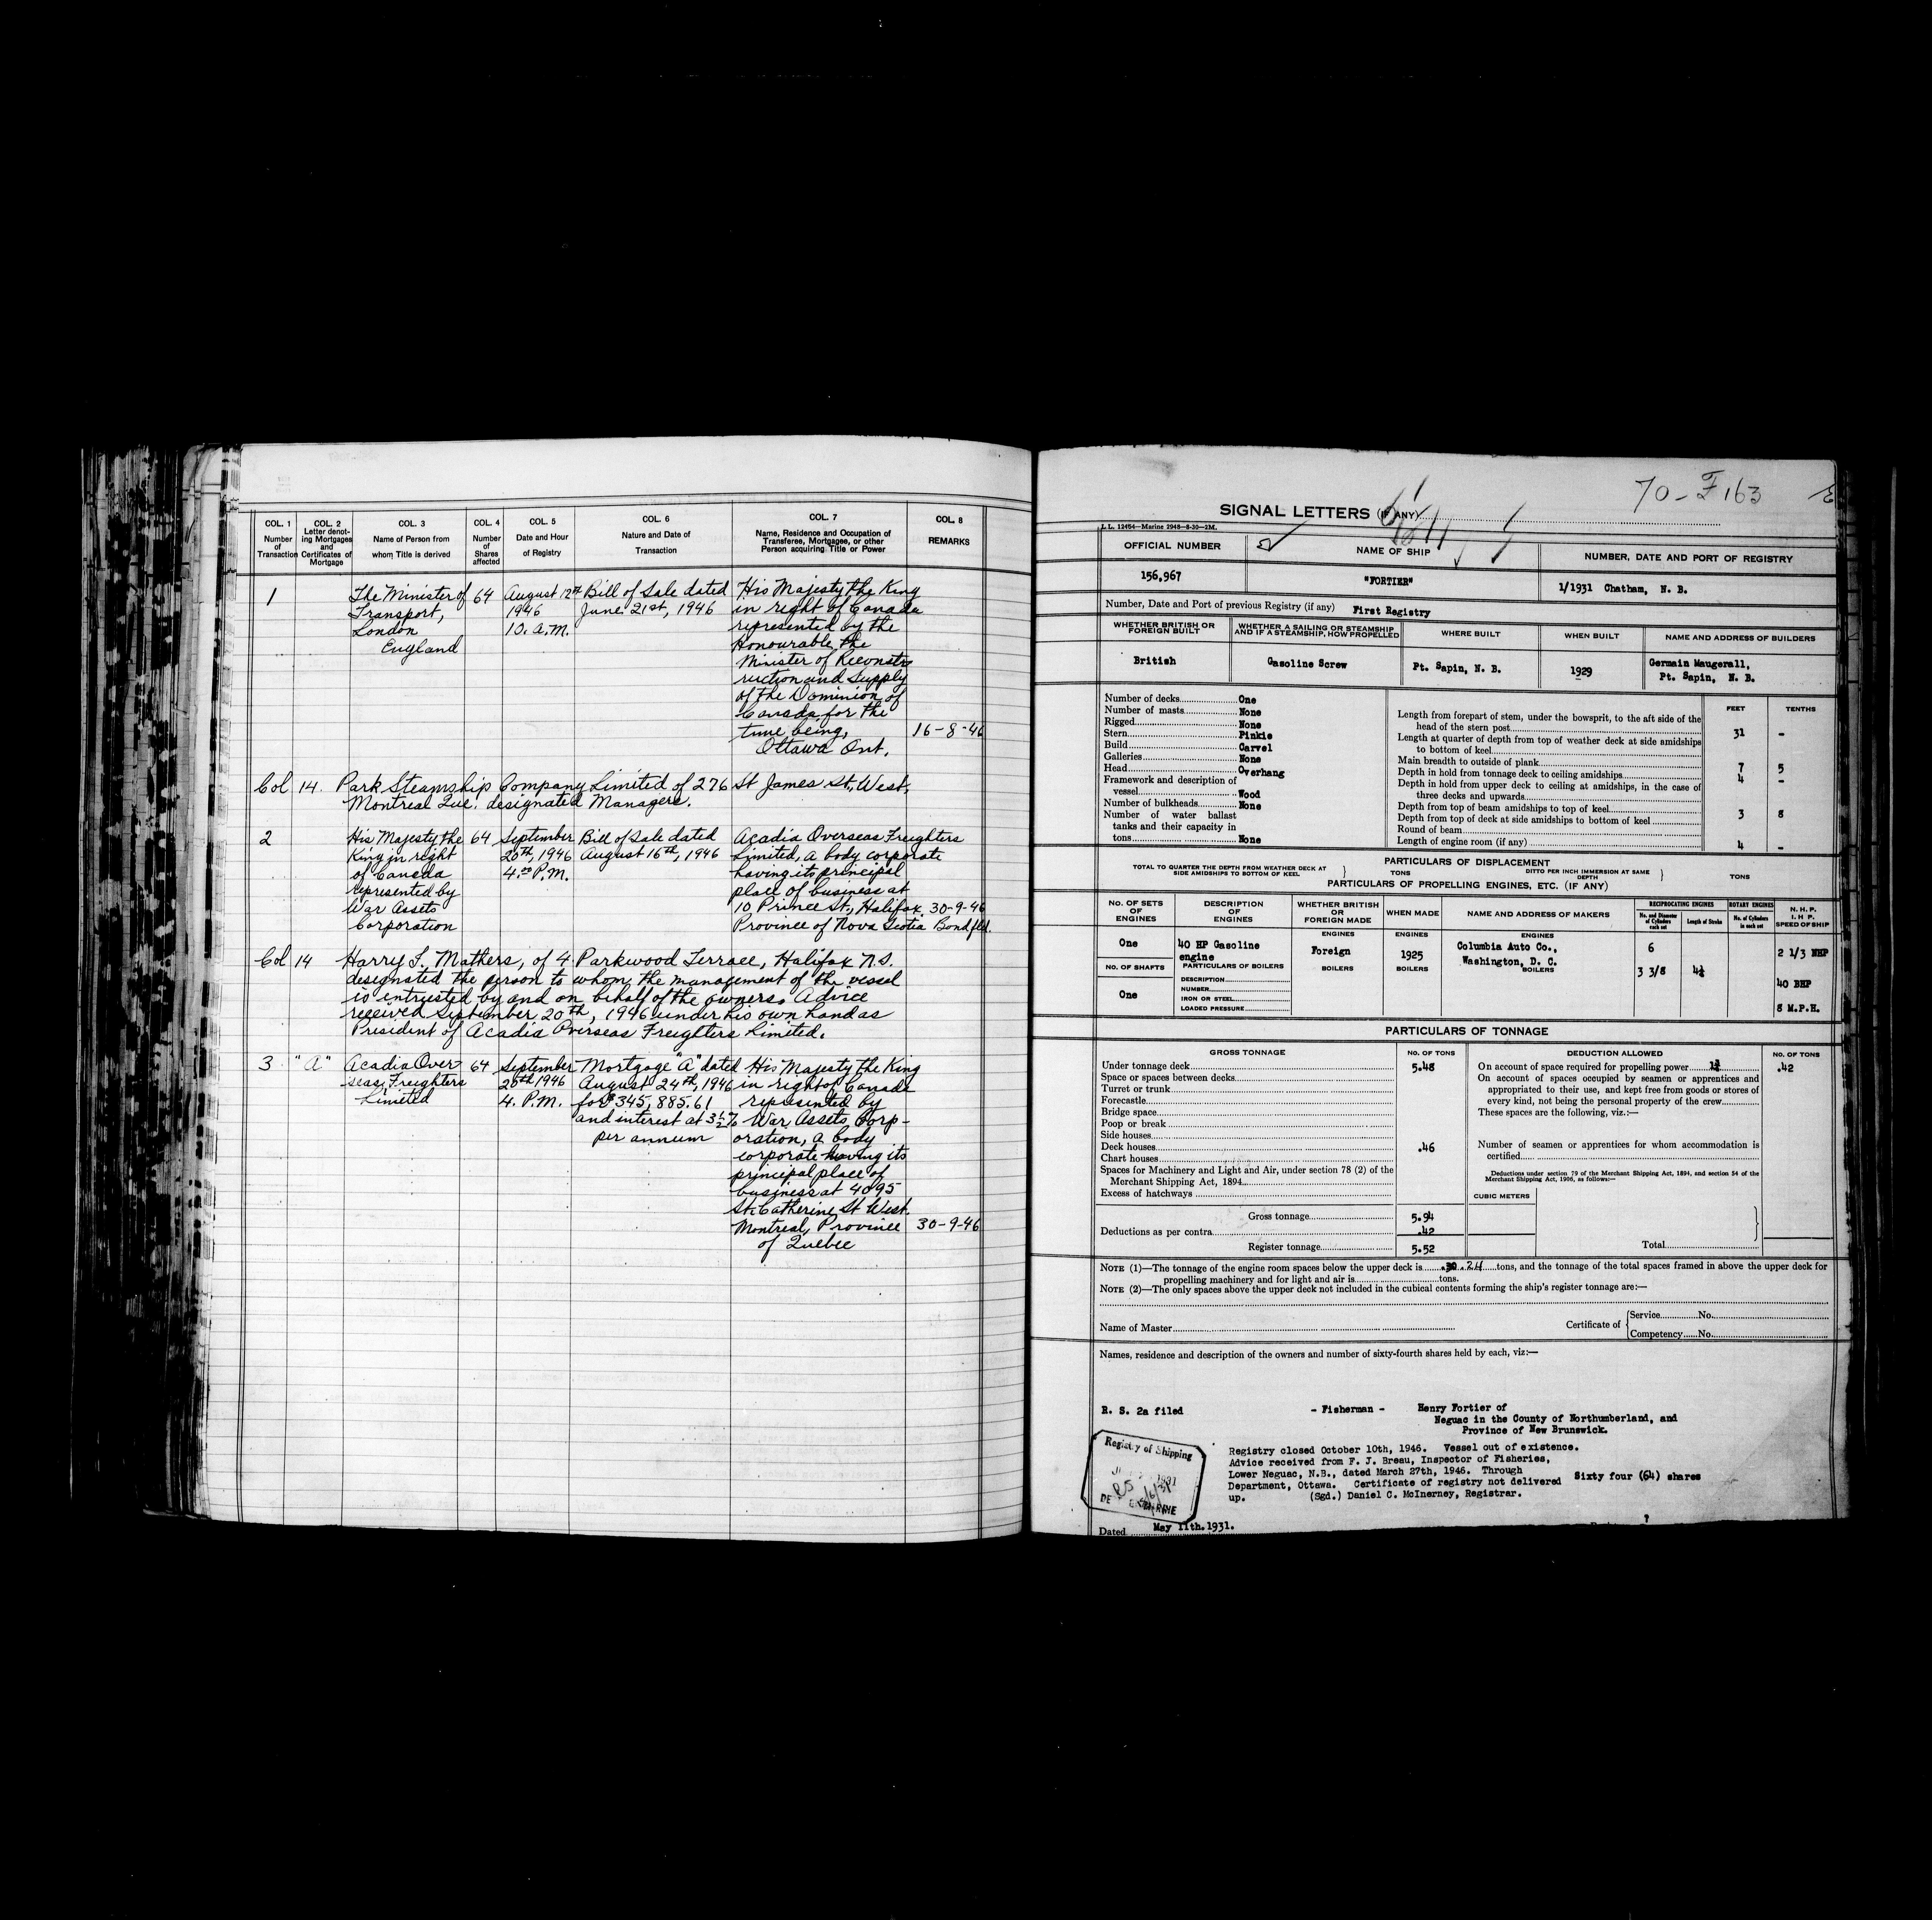 COL. 1 COL. 2 COL. 3 COL. 4 COL. 5 COL. 6 COL. 7 COL. 8
Number of Transaction
Letter denoting Mortgages and Certificates of Mortgage
Name of Person from whom Title is derived
Number of Shares affected
Date and Hour of Registry
Nature and Date of Transaction
Name, Residence and Occupation of Transferee, Mortgagee, or other Person acquiring Title or Power
REMARKS
1 The Minister of 64 August 12th Bill of Sale dated His Majesty the King
Transport, 1946 June 21st, 1946 in right of Canada
London 10. A.M. represented by the
England Honourable, the
Minister of Reconst-
ruction and Supply
of the Dominion of
Canada, for the
time being, 16-8-46
Ottawa Ont.
Col 14. Park Steamship Company Limited of 276 St James St., West,
Montreal Que. designated Managers.
2 His Majesty the 64 September Bill of Sale dated Acadia Overseas Freighters
King in right 20th, 1946 August 16th, 1946 Limited, a body corporate
of Canada 4.00 P.M. having its principal
represented by place of business at
War Assets 10 Prince St., Halifax. 30-9-46
Corporation Province of Nova Scotia Bond fld.
Col 14 Harry I. Mathers, of 4 Parkwood Terrace, Halifax N.S.
designated the person to whom the management of the vessel
is intrusted by and on behalf of the owners. Advice
received September 20th, 1946 under his own hand as
President of Acadia Overseas Freighters Limited.
3 "A" Acadia Over 64 September Mortgage "A" dated His Majesty the King
seas Freighters 20th 1946 August 24th, 1946 in right of Canada
Limited 4. P.M. for $345,885.61 represented by
and interest at 3½% War Assets Corp-
per annum oration, a body
corporate having its
principal place of
business at 4095
St. Catherine St West.
Montreal, Province 30-9-46
of Quebec
70-F163
SIGNAL LETTERS (IF ANY)
L.L. 12454—Marine 2948—8-30—2M.
OFFICIAL NUMBER NAME OF SHIP NUMBER, DATE AND PORT OF REGISTRY
156,967 "FORTIER" 1/1931 Chatham, N. B.
Number, Date and Port of previous Registry (if any) First Registry
WHETHER BRITISH OR FOREIGN BUILT
WHETHER A SAILING OR STEAMSHIP AND IF A STEAMSHIP, HOW PROPELLED
WHERE BUILT WHEN BUILT NAME AND ADDRESS OF BUILDERS
British Gasoline Screw Pt. Sapin, N. B. 1929 Germain Maugerall,
Pt. Sapin, N. B.
Number of decks One
Number of masts None
Rigged None
Stern Pinkie
Build Carvel
Galleries None
Head Overhang
Framework and description of
vessel Wood
Number of bulkheads None
Number of water ballast
tanks and their capacity in
tons None
FEET TENTHS
Length from forepart of stem, under the bowsprit, to the aft side of the
head of the stern post 31 -
Length at quarter of depth from top of weather deck at side amidships
to bottom of keel
Main breadth to outside of plank 7 5
Depth in hold from tonnage deck to ceiling amidships 4 -
Depth in hold from upper deck to ceiling at amidships, in the case of
three decks and upwards
Depth from top of beam amidships to top of keel
Depth from top of deck at side amidships to bottom of keel 3 8
Round of beam
Length of engine room (if any) 4 -
PARTICULARS OF DISPLACEMENT
TOTAL TO QUARTER THE DEPTH FROM WEATHER DECK AT SIDE AMIDSHIPS TO BOTTOM OF KEEL } TONS DITTO PER INCH IMMERSION AT SAME DEPTH } TONS
PARTICULARS OF PROPELLING ENGINES, ETC. (IF ANY)
NO. OF SETS OF ENGINES
DESCRIPTION OF ENGINES
WHETHER BRITISH OR FOREIGN MADE
WHEN MADE
NAME AND ADDRESS OF MAKERS
RECIPROCATING ENGINES
No. and Diameter of Cylinders each set
Length of Stroke
ROTARY ENGINES
No. of Cylinders in each set
N. H. P.
I. H. P.
SPEED OF SHIP
ENGINES ENGINES ENGINES
One 40 HP Gasoline engine Foreign 1925 Columbia Auto Co., 6 2 1/3 NHP
Washington, D. C.
NO. OF SHAFTS PARTICULARS OF BOILERS BOILERS BOILERS BOILERS 3 3/8 4½
DESCRIPTION 40 BHP
NUMBER
One IRON OR STEEL
LOADED PRESSURE 8 M.P.H.
PARTICULARS OF TONNAGE
GROSS TONNAGE NO. OF TONS DEDUCTION ALLOWED NO. OF TONS
Under tonnage deck 5.48
Space or spaces between decks
Turret or trunk
Forecastle
Bridge space
Poop or break
Side houses
Deck houses .46
Chart houses
Spaces for Machinery and Light and Air, under section 78 (2) of the
Merchant Shipping Act, 1894
Excess of hatchways
Gross tonnage 5.94
Deductions as per contra .42
Register tonnage 5.52
On account of space required for propelling power .42
On account of spaces occupied by seamen or apprentices and
appropriated to their use, and kept free from goods or stores of
every kind, not being the personal property of the crew
These spaces are the following, viz.:—
Number of seamen or apprentices for whom accommodation is
certified
Deductions under section 79 of the Merchant Shipping Act, 1894, and section 54 of the
Merchant Shipping Act, 1906, as follows:—
CUBIC METERS
Total
NOTE (1)—The tonnage of the engine room spaces below the upper deck is .24 tons, and the tonnage of the total spaces framed in above the upper deck for
propelling machinery and for light and air is tons.
NOTE (2)—The only spaces above the upper deck not included in the cubical contents forming the ship's register tonnage are:—
Name of Master
Certificate of { Service No.
Competency No.
Names, residence and description of the owners and number of sixty-fourth shares held by each, viz:—
R. S. 2a filed - Fisherman - Henry Fortier of
Neguac in the County of Northumberland, and
Province of New Brunswick.
Registry closed October 10th, 1946. Vessel out of existence.
Advice received from F. J. Breau, Inspector of Fisheries,
Lower Neguac, N.B., dated March 27th, 1946. Through
Department, Ottawa. Certificate of registry not delivered
up. (Sgd.) Daniel C. McInerney, Registrar.
Sixty four (64) shares
Registry of Shipping
Dated May 11th.1931.